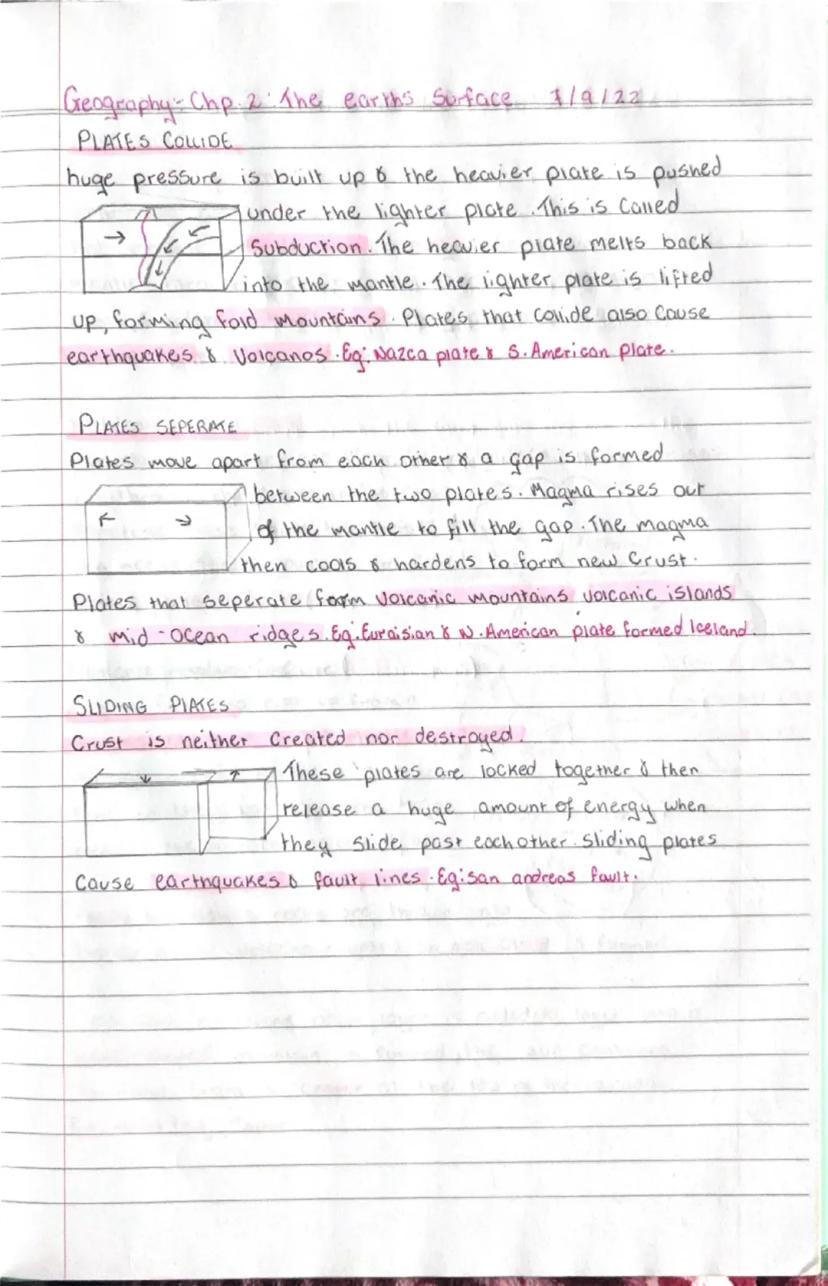 Geography:- Chp. 2: The earths Surface 7/9/22
PLATES COLLIDE
huge pressure is built up & the heavier plate is pushed
under the lighter plate. This is Called
Subduction. The heavier plate melts back
into the mantle. The lighter plate is lifted
up, forming fold mountains. Plates that collide also cause
earthquakes & Volcanos. Eg: Nazca plate & S. American plate.
PLATES SEPERATE
Plates move apart from each other & a gap is formed
between the two plates. Magma rises out
of the mantle to fill the gap. The magma
then cools & hardens to form new Crust.
Plates that seperate form volcanic mountains volcanic islands
& mid-ocean ridges. Eg. Euraisian & N. American plate formed Iceland.
SLIDING PLATES
Crust is neither Created nor destroyed.
These plates are locked together & then
release a huge amount of energy when
they slide past eachother. Sliding plates
Cause earthquakes & fault lines. Eg: san andreas fault.